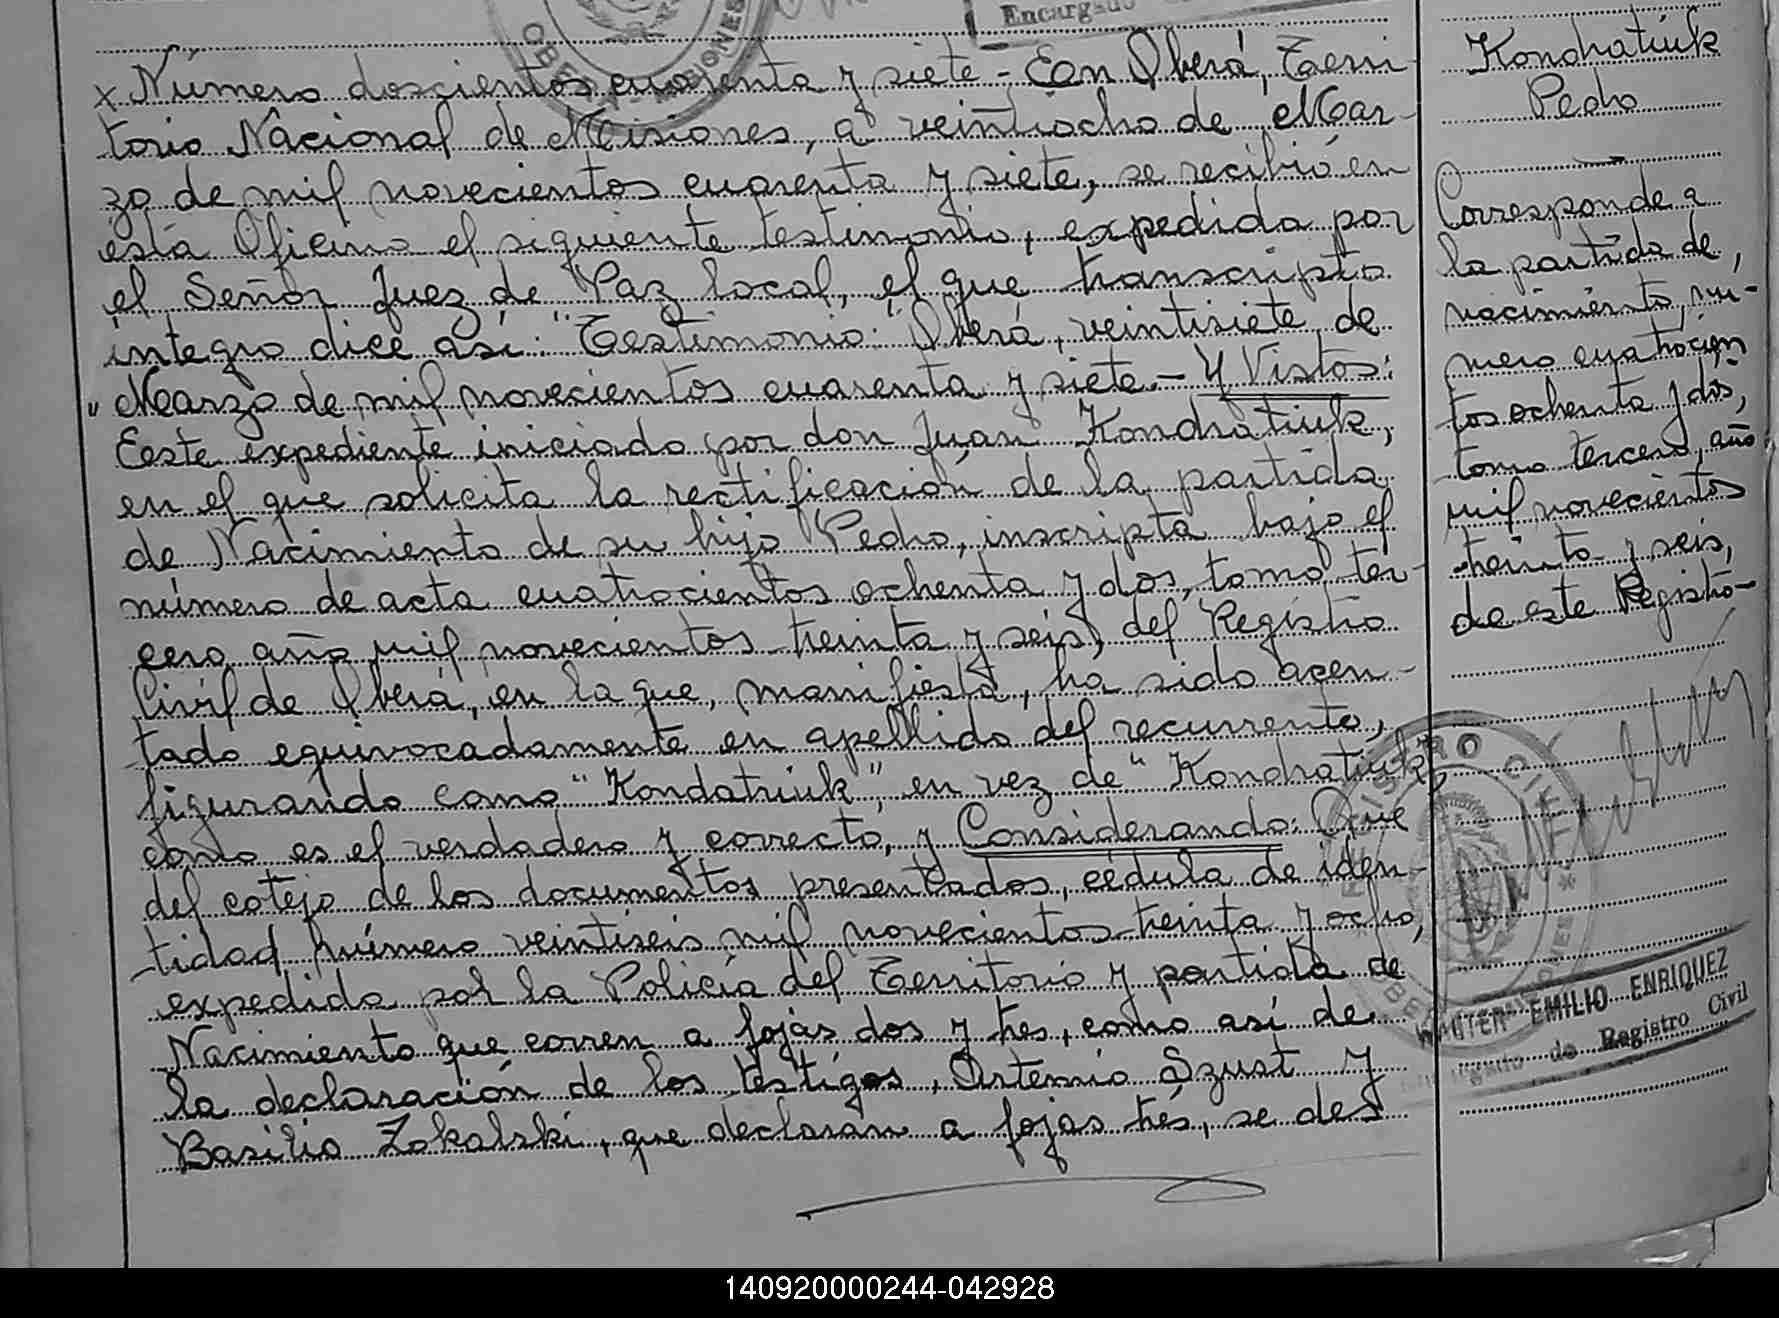 Encargado
OBERÁ - MISIONES
x Número doscientos cuarenta y siete - Een Oberá, Terri-
torio Nacional de Misiones, a veintiocho de Mar-
zo de mil novecientos cuarenta y siete, se recibió en
esta Oficina el siguiente testimonio, expedida por
el Señor Juez de Paz local, el que transcripto
íntegro dice así: "Testimonio: "Oberá, veintisiete de
" Marzo de mil novecientos cuarenta y siete.- Y Vistos:
Eeste expediente iniciado por don Juan Kondratiuk,
en el que solicita la rectificación de la partida
de Nacimiento de su hijo Pedro, inscripta bajo el
número de acta cuatrocientos ochenta y dos, tomo ter-
cero, año mil novecientos treinta y seis, del Registro
Civil de Oberá, en la que, manifiesta, ha sido acen-
tado equivocadamente en apellido del recurrente,
figurando como "Kondatriuk", en vez de "Kondratiuk",
como es el verdadero y correcto, y Considerando: Que
del cotejo de los documentos presentados, cédula de iden-
tidad número veintiseis mil novecientos treinta y ocho,
expedida por la Policía del Territorio y partida de
Nacimiento que corren a fojas dos y tres, como así de
la declaración de los testigos, Artemio Szust y
Basilio Zokalski, que declaran a fojas tres, se des
Kondratiuk
Pedro
Corresponde a
la partida de,
nacimiento, nú-
mero cuatrocien
tos ochenta y dos,
tomo tercero, año
mil novecientos
treinta y seis,
de este Registro-
REGISTRO CIVIL
OBERÁ MISIONES
WALTER EMILIO ENRIQUEZ
Encargado de Registro Civil
140920000244-042928